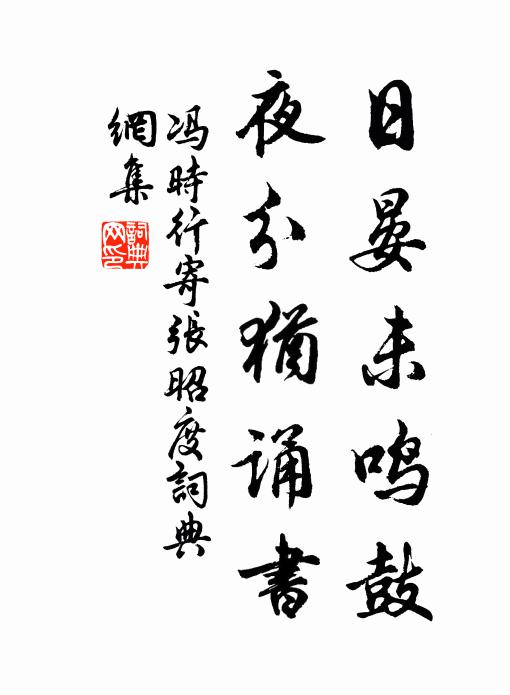 日晏未鸣鼓
夜分猶诵書
冯時行寄張昭度詞典
網集
詞典网印